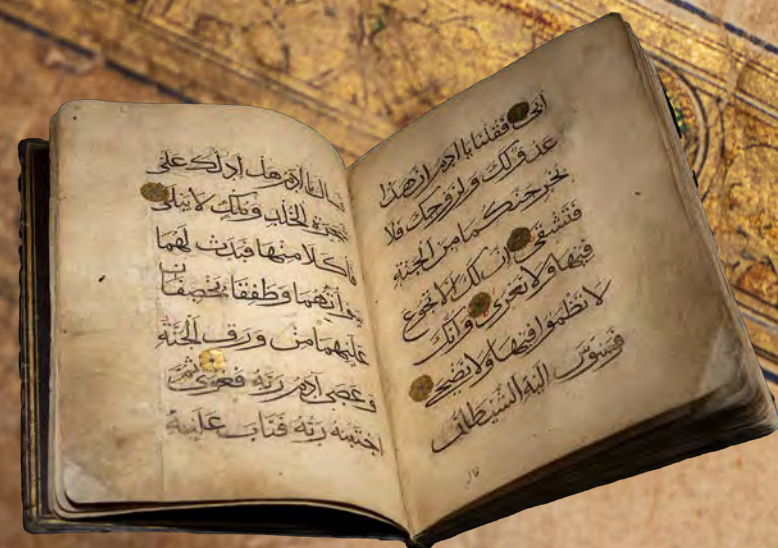 أبى فقلنا يا ادم ان هذا
عدو لك ولزوجك فلا
يخرجنكما من الجنة
فتشقى ان لك الا تجوع
فيها ولا تعرى وانك
لا تظموا فيها ولا تضحى
فوسوس اليه الشيطان
قال
قال يا ادم هل ادلك على
شجرة الخلد وملك لا يبلى
فاكلا منها فبدت لهما
سوآتهما وطفقا يخصفان
عليهما من ورق الجنة
وعصى ادم ربه فغوى ثم
اجتبيه ربه فتاب عليه